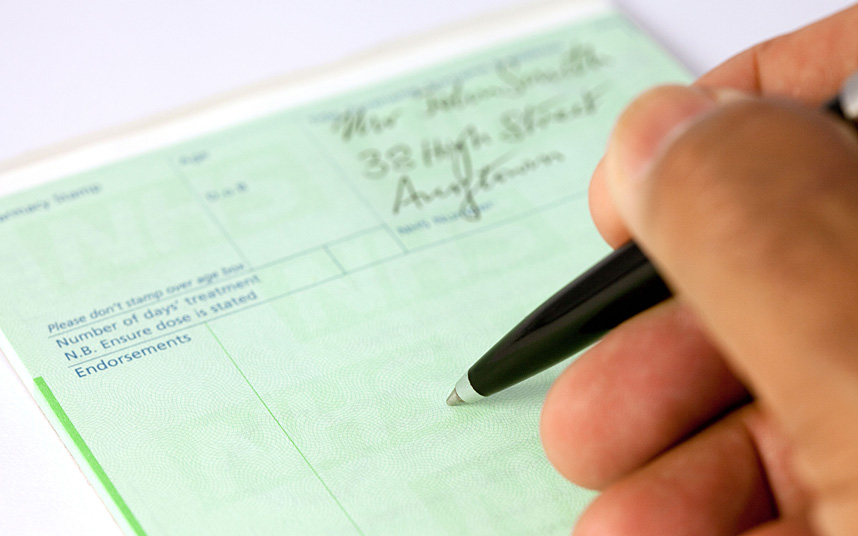 armacy Name
Age
D.o.B
Mr John Smith
38 High Street
Anytown
NHS Number
Please don't stamp over age box
Number of days' treatment
N.B. Ensure dose is stated
Endorsements